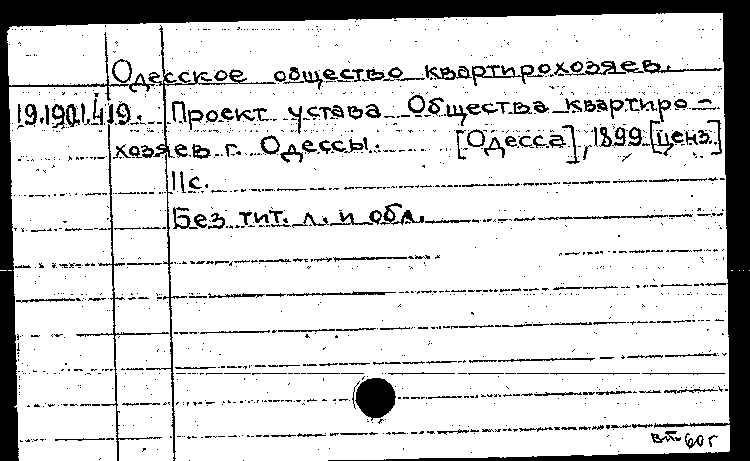 Одесское общество квартирохозяев.
19.1901.419. Проект устава Общества квартиро-
хозяев г. Одессы. [Одесса], 1899 [ценз]
11 с.
Без тит. л. и обл.
60 г